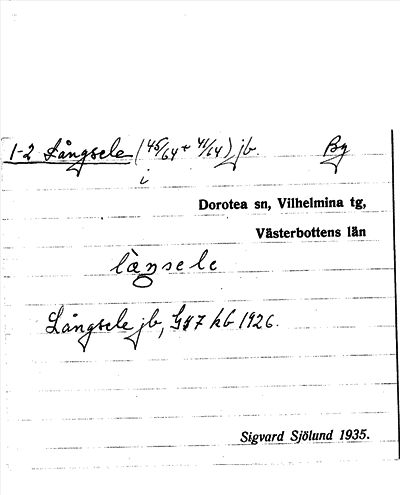 1-2 Långsele (45/64 + 41/64) jb. By
i
Dorotea sn, Vilhelmina tg,
Västerbottens län
làŋsele
Långsele jb, G 47 kb 1926.
Sigvard Sjölund 1935.